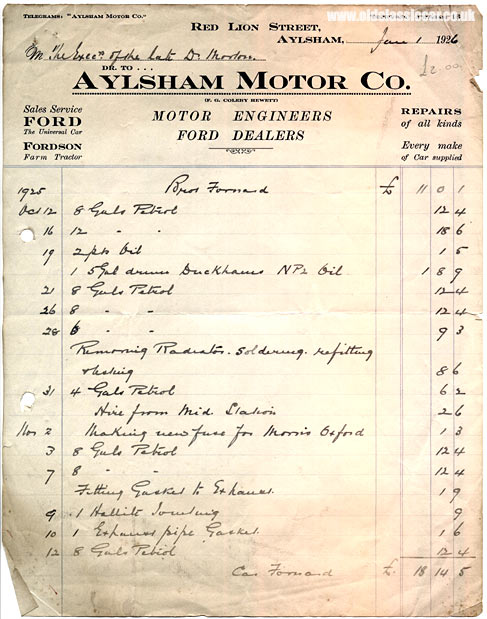 www.oldclassiccar.co.uk
Telegrams: "Aylsham Motor Co."
Red Lion Street,
Aylsham, Jan 1 1926
£2.00
Mr The Execrs of the late Dr Morton.
Dr. to . . .
Aylsham Motor Co.
(F. G. Coleby Hewett)
Sales Service
FORD
The Universal Car
FORDSON
Farm Tractor
MOTOR ENGINEERS
FORD DEALERS
REPAIRS
of all kinds
Every make
of Car supplied
1925 Brot Forward £ 11 0 1
Oct 12 8 Gals Petrol 12 4
16 12 " " 18 6
19 2 pts Oil 1 5
1 5 Gal drum Duckhams NP2 Oil 1 8 9
21 8 Gals Petrol 12 4
26 8 " " 12 4
28 6 " " 9 3
Removing Radiator. Soldering. refitting
& testing 8 6
31 4 Gals Petrol 6 2
Hire from Mid Station 2 6
Nov 2 Making new fuse for Morris Oxford 1 3
3 8 Gals Petrol 12 4
7 8 " " 12 4
Fitting Gasket to Exhaust 1 9
9 1 Hallite Jointing 9
10 1 Exhaust pipe Gasket. 1 6
12 8 Gals Petrol 12 4
Car Forward £ 18 14 5